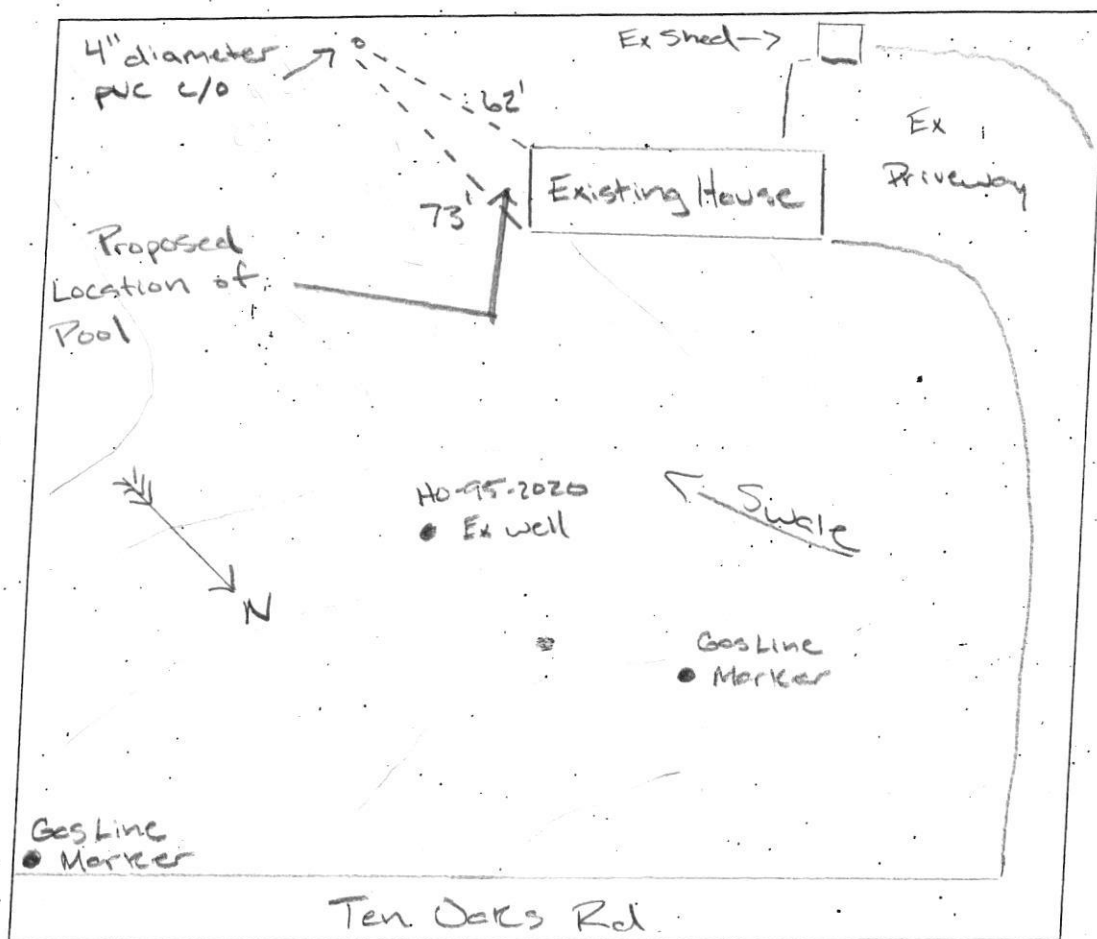 4" diameter
PVC C/O
Ex Shed
62'
Ex
Driveway
Existing House
73'
Proposed
Location of
Pool
HO-95-2020
Ex well
Swale
N
Gas Line
Marker
Gas Line
Marker
Ten Oaks Rd